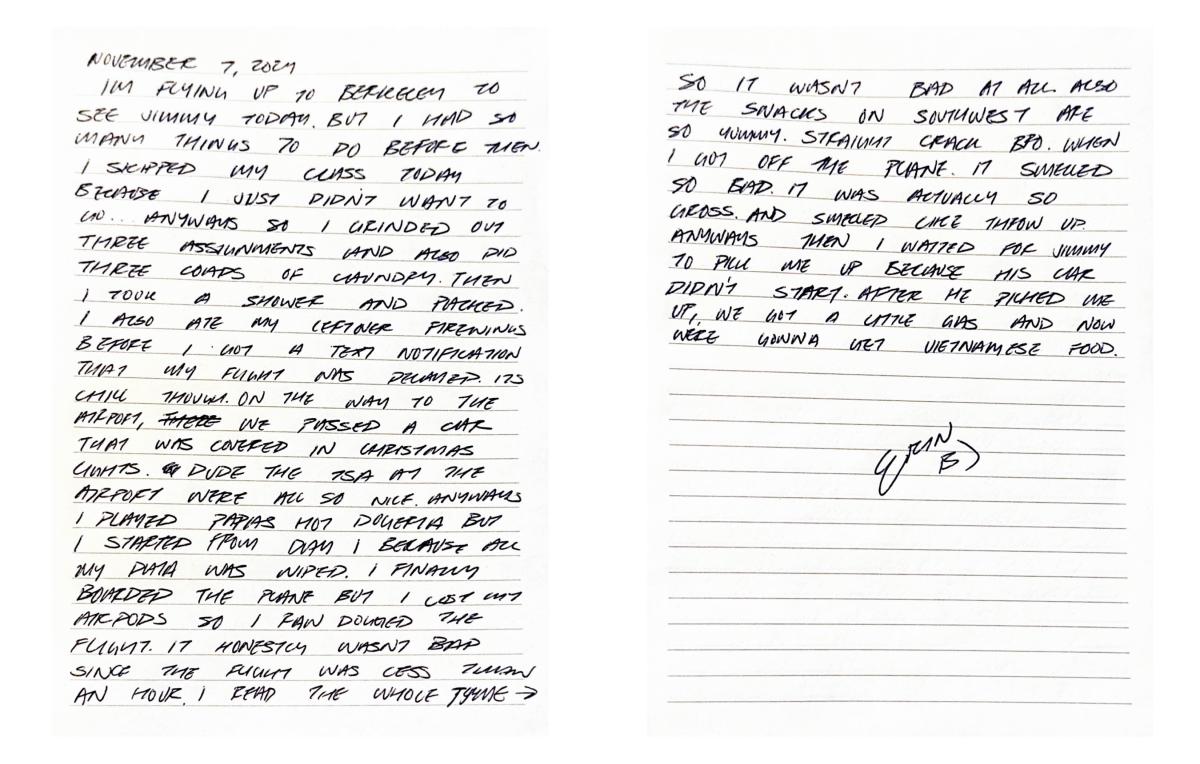 NOVEMBER 7, 2024
IM FLYING UP TO BERKELEY TO
SEE JIMMY TODAY. BUT I HAD SO
MANY THINGS TO DO BEFORE THEN.
I SKIPPED MY CLASS TODAY
BECAUSE I JUST DIDN'T WANT TO
GO... ANYWAYS SO I GRINDED OUT
THREE ASSIGNMENTS AND ALSO DID
THREE LOADS OF LAUNDRY. THEN
I TOOK A SHOWER AND PACKED.
I ALSO ATE MY LEFTOVER FIREWINGS
BEFORE I GOT A TEXT NOTIFICATION
THAT MY FLIGHT WAS DELAYED. ITS
CHILL THOUGH. ON THE WAY TO THE
AIRPORT, THERE WE PASSED A CAR
THAT WAS COVERED IN CHRISTMAS
LIGHTS. DUDE THE TSA AT THE
AIRPORT WERE ALL SO NICE. ANYWAYS
I PLAYED PAPAS HOT DOGERIA BUT
I STARTED FROM DAY 1 BECAUSE ALL
MY DATA WAS WIPED. I FINALLY
BOARDED THE PLANE BUT I LOST MY
AIRPODS SO I RAW DOGGED THE
FLIGHT. IT HONESTLY WASN'T BAD
SINCE THE FLIGHT WAS LESS THAN
AN HOUR. I READ THE WHOLE TYME →
SO IT WASN'T BAD AT ALL. ALSO
THE SNACKS ON SOUTHWEST ARE
SO YUMMY. STRAIGHT CRACK BRO. WHEN
I GOT OFF THE PLANE. IT SMELLED
SO BAD. IT WAS ACTUALLY SO
GROSS. AND SMELLED LIKE THROW UP.
ANYWAYS THEN I WAITED FOR JIMMY
TO PICK ME UP BECAUSE HIS CAR
DIDN'T START. AFTER HE PICKED ME
UP, WE GOT A LITTLE GAS AND NOW
WERE GONNA GET VIETNAMESE FOOD.